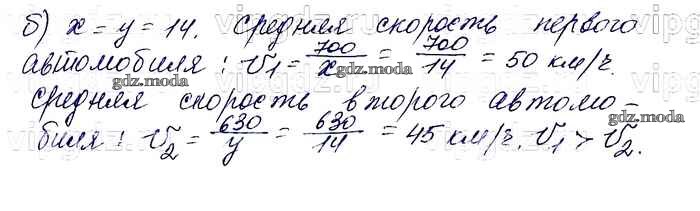 б) x = y = 14. Средняя скорость первого
автомобиля: v₁ = 700/x = 700/14 = 50 км/ч.
Средняя скорость второго автомо-
биля: v₂ = 630/y = 630/14 = 45 км/ч. v₁ > v₂.
gdz.moda
gdz.moda
gdz.moda
gdz.moda
gdz.moda